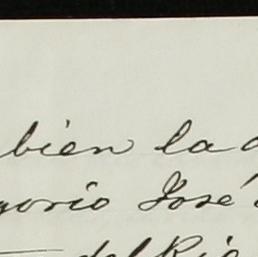 bien la
gorio José
del Rio